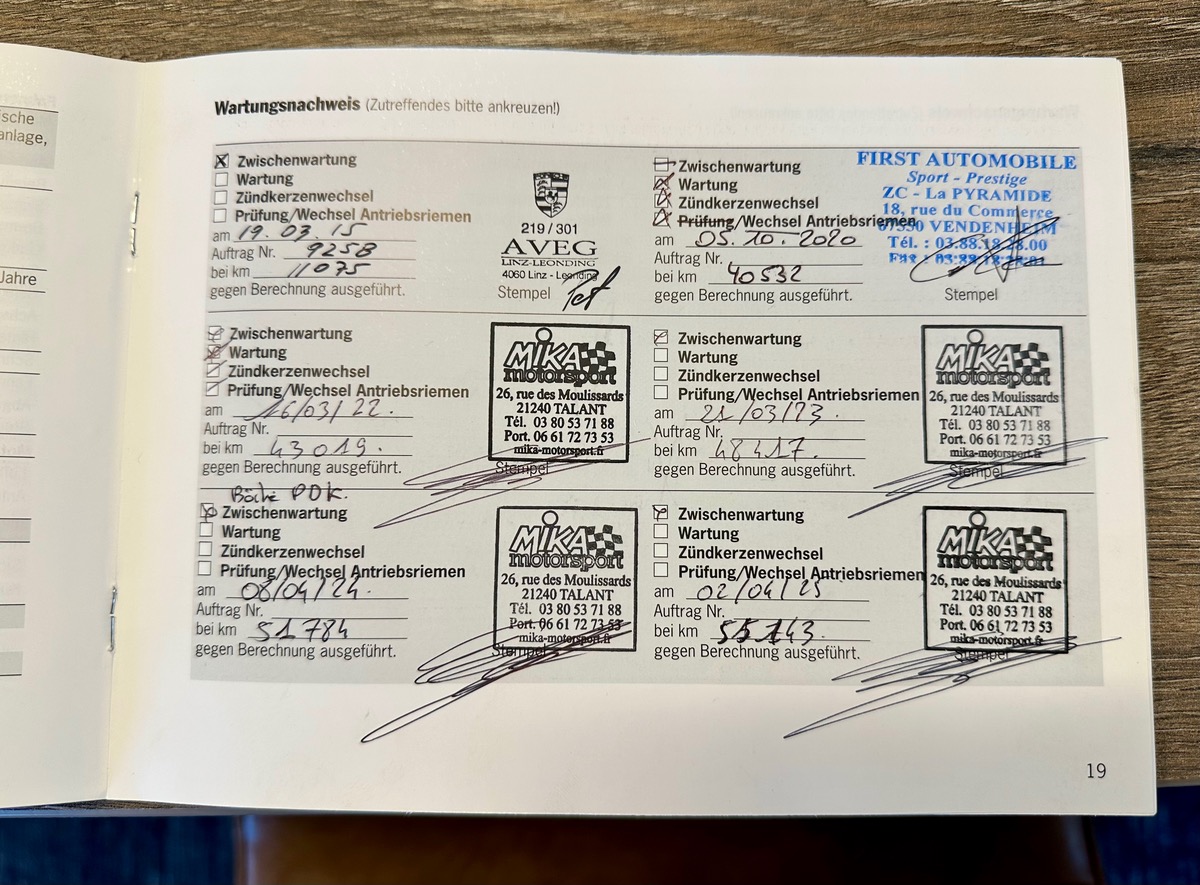 sche
anlage,
Jahre
Wartungsnachweis (Zutreffendes bitte ankreuzen!)
Zwischenwartung
Wartung
Zündkerzenwechsel
Prüfung/Wechsel Antriebsriemen
am 19.03.15
Auftrag Nr. 9258
bei km 11075
gegen Berechnung ausgeführt.
219/301
AVEG
LINZ-LEONDING
4060 Linz - Leonding
Stempel
Zwischenwartung
Wartung
Zündkerzenwechsel
Prüfung/Wechsel Antriebsriemen
am 05.10.2020
Auftrag Nr.
bei km 40532
gegen Berechnung ausgeführt.
FIRST AUTOMOBILE
Sport - Prestige
ZC - La PYRAMIDE
18, rue du Commerce
VENDENHEIM
Tél. : 03.88.18.28.00
Stempel
Zwischenwartung
Wartung
Zündkerzenwechsel
Prüfung/Wechsel Antriebsriemen
am 16/03/22.
Auftrag Nr.
bei km 43019.
gegen Berechnung ausgeführt.
MIKA
motorsport
26, rue des Moulissards
21240 TALANT
Tél. 03 80 53 71 88
Port. 06 61 72 73 53
mika-motorsport.fr
Stempel
Zwischenwartung
Wartung
Zündkerzenwechsel
Prüfung/Wechsel Antriebsriemen
am 21/03/23.
Auftrag Nr.
bei km 48417.
gegen Berechnung ausgeführt.
MIKA
motorsport
26, rue des Moulissards
21240 TALANT
Tél. 03 80 53 71 88
Port. 06 61 72 73 53
mika-motorsport.fr
Stempel
PDK.
Zwischenwartung
Wartung
Zündkerzenwechsel
Prüfung/Wechsel Antriebsriemen
am 08/04/24.
Auftrag Nr.
bei km 51784
gegen Berechnung ausgeführt.
MIKA
motorsport
26, rue des Moulissards
21240 TALANT
Tél. 03 80 53 71 88
Port. 06 61 72 73 53
mika-motorsport.fr
Stempel
Zwischenwartung
Wartung
Zündkerzenwechsel
Prüfung/Wechsel Antriebsriemen
am 02/04/25
Auftrag Nr.
bei km 55143.
gegen Berechnung ausgeführt.
MIKA
motorsport
26, rue des Moulissards
21240 TALANT
Tél. 03 80 53 71 88
Port. 06 61 72 73 53
mika-motorsport.fr
Stempel
19